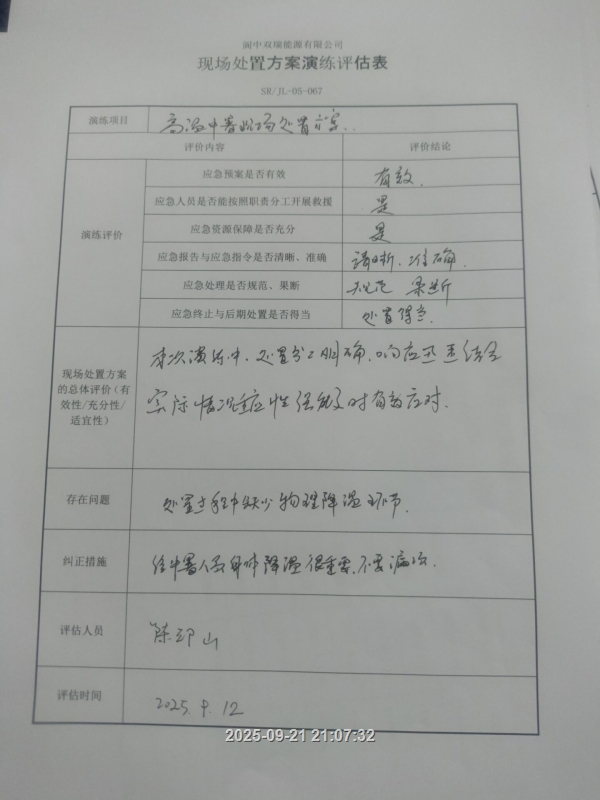 阆中双瑞能源有限公司
现场处置方案演练评估表
SR/JL-05-067
演练项目 高温中暑现场处置方案.
评价内容 评价结论
演练评价
应急预案是否有效 有效.
应急人员是否能按照职责分工开展救援 是
应急资源保障是否充分 是
应急报告与应急指令是否清晰、准确 清晰、准确.
应急处理是否规范、果断 规范 果断
应急终止与后期处置是否得当 处置得当.
现场处置方案的总体评价(有效性/充分性/适宜性)
本次演练中,处置分工明确,响应迅速结合
实际情况适应性强能及时有效应对.
存在问题 处置过程中缺少物理降温环节.
纠正措施 给中暑人员身体降温很重要,不要漏项.
评估人员 陈 山
评估时间 2025.9.12
2025-09-21 21:07:32